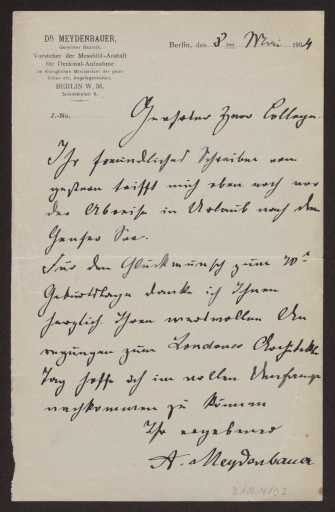 DR. MEYDENBAUER,
Geheimer Baurat,
Vorsteher der Messbild-Anstalt
für Denkmal-Aufnahme
im Königlichen Ministerium der geist-
lichen etc. Angelegenheiten.
BERLIN W. 56,
Schinkelplatz 6.
Berlin, den 8 ten Mai 1904
J.-No.
Geehrter Herr College.
Ihr freundliches Schreiben von
gestern trifft mich eben noch vor
der Abreise in Urlaub nach dem
Genfer See.
Für den Glückwunsch zum 70n
Geburtstage danke ich Ihnen
herzlich. Ihren wertvollen An
regungen zum Londoner Architekten
Tag hoffe ich im vollen Umfange
nachkommen zu können
Ihr ergebener
A. Meydenbauer